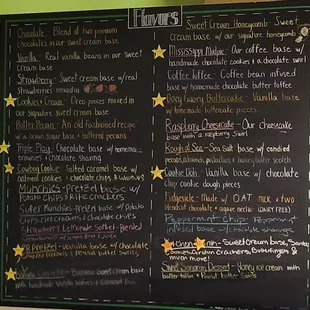 Flavors
Chocolate - Blend of two premium
chocolates in our sweet cream base
Vanilla - Real vanilla beans in our sweet
cream base
Strawberry - Sweet cream base w/real
strawberries mixed in
Cookies & Cream - Oreo pieces mixed in
our signature sweet cream base
Butter Pecan - An old fashioned recipe
w/a brown sugar base + buttered pecans
Triple Play - Chocolate base w/ homemade
brownies + chocolate shaving
Cowboy Cookie - Salted caramel base w/
oatmeal cookies + chocolate chips &
Munchies - Pretzel base w/
potato chips & Ritz crackers
Super Munchies - Pretzel base w/ potato
chips, Ritz crackers & chocolate chips
Strawberry Lemonade Sorbet - Blended
PB Pretzel - Vanilla base w/ chocolate
covered pretzels & peanut butter swirls
Banana sweet cream base
with homemade vanilla wafers &
Sweet Cream Honeycomb - Sweet
cream base w/ our signature honeycomb
Mississippi Mudpie - Our coffee base w/
handmade chocolate cookies & a chocolate swirl
Coffee Toffee - Coffee bean infused
base w/ homemade chocolate butter toffee
Ooey Gooey Buttercake - Vanilla base
w/ homemade buttercake pieces
Raspberry Cheesecake - Our cheesecake
base with a raspberry swirl
Rough at Sea - Sea Salt base w/ candied
pecans, almonds, pistachios + honey butter scotch
Cookie Doh - Vanilla base w/ chocolate
chip cookie dough pieces
Fudgesicle - Made w/ OAT milk + two
kinds of chocolate + agave nectar (DAIRY FREE)
Peppermint Chip - Peppermint
infused base w/ chocolate shavings
Sweet cream base,
graham crackers, Butterfingers &
much more!
Sweet Bananas Dessert - Honey ice cream with
butter toffee & peanut butter swirls